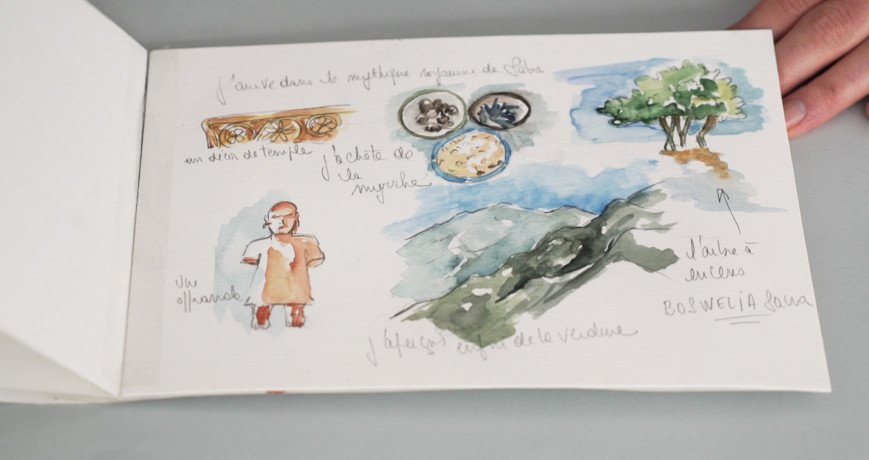 j'arrive dans le mythique royaume de Saba
un décor de temple
j'achète de
la
myrrhe
une
offrande
l'arbre à
encens
BOSWELIA Sacra
j'aperçois enfin de la verdure